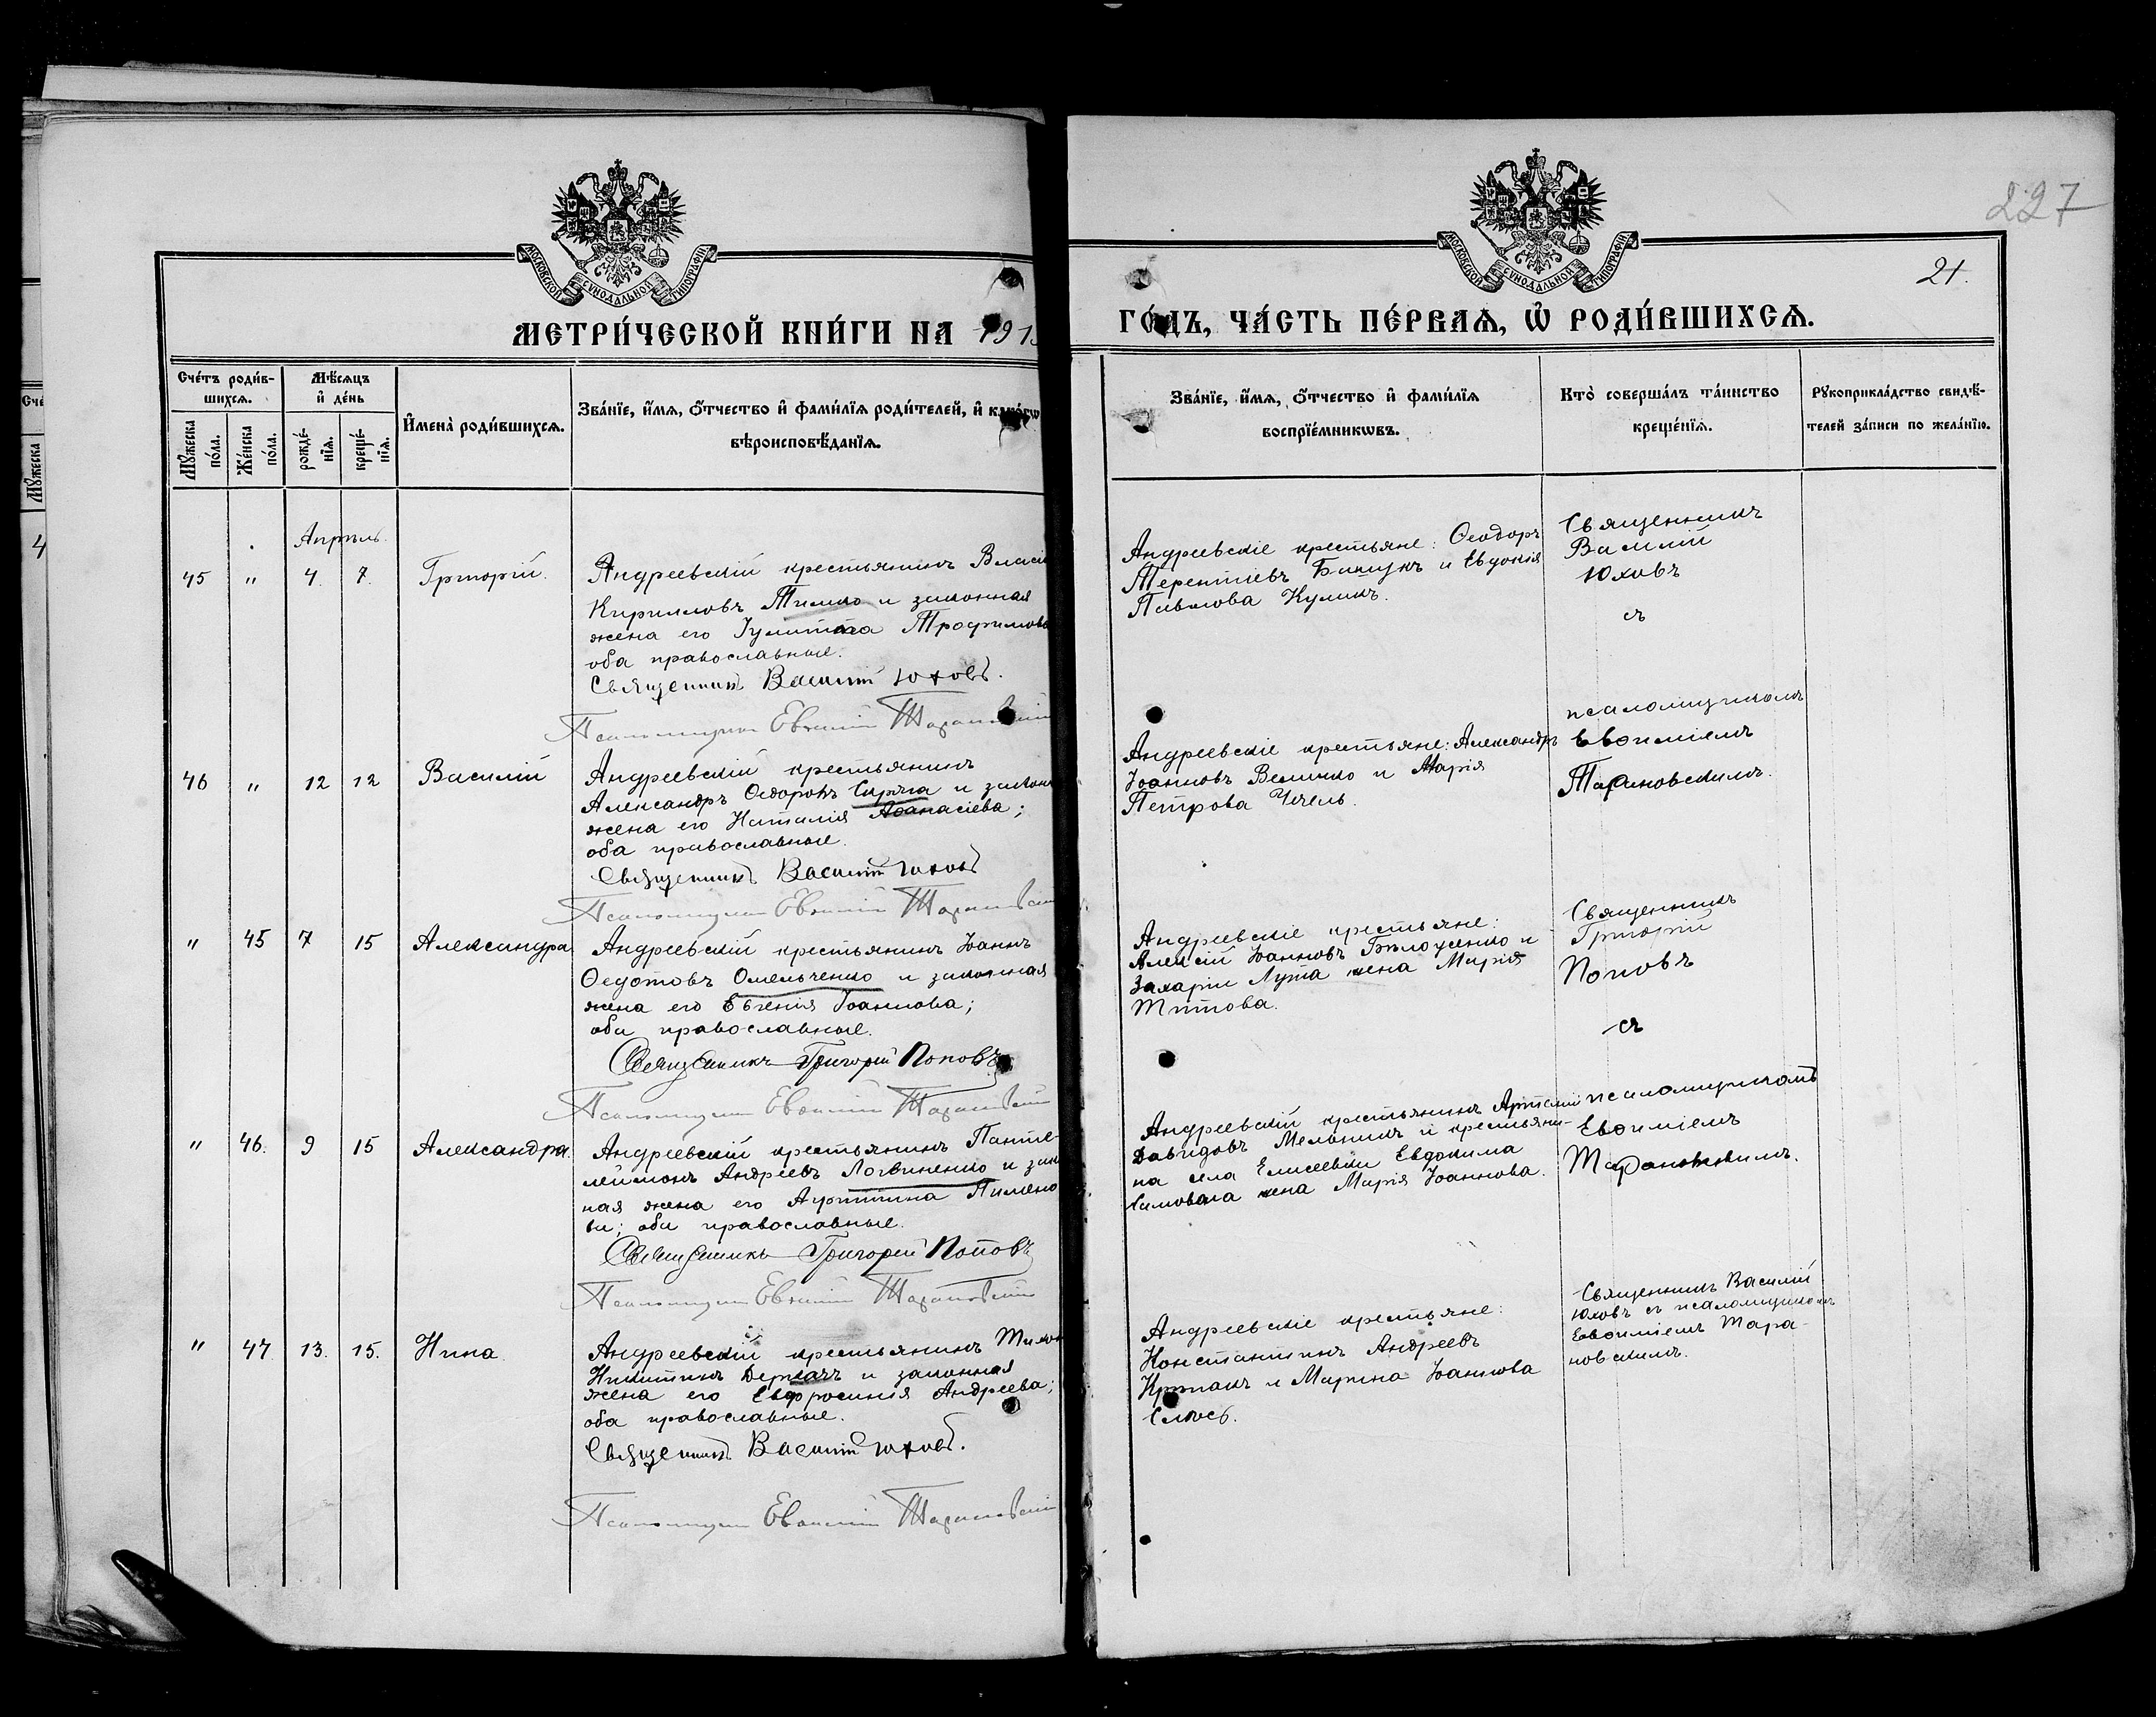 227
21.
МОСКОВСКОЙ СѴНОДАЛЬНОЙ ТИПОГРАФІИ
МОСКОВСКОЙ СѴНОДАЛЬНОЙ ТИПОГРАФІИ
МЕТРИ́ЧЕСКОЙ КНИ́ГИ НА 191
ГО́ДЪ, ЧА́СТЬ ПЕ́РВАѦ, Ѡ҆ РОДИ́ВШИХСѦ.
Сче́тъ роди́в-
шихсѧ.
Мѣ́сѧцъ
и҆ де́нь
Мꙋ́жеска
по́ла.
Же́нска
по́ла.
рожде́-
нїѧ.
креще́-
нїѧ.
И҆мена̀ роди́вшихсѧ.
Зва́нїе, и҆́мѧ, ѻ҆́тчество и҆ фами́лїѧ роди́телей, и҆ како́гѡ
вѣроисповѣ́данїѧ.
Зва́нїе, и҆́мѧ, ѻ҆́тчество и҆ фами́лїѧ
воспрїе́мникѡвъ.
Кто̀ соверша́лъ та́инство
креще́нїѧ.
Рꙋкоприкла́дство свидѣ́-
телей за́писи по жела́нїю.
Апрѣль.
45 " 4. 7. Григорій.
Андреевскій крестьянинъ Власій
Кирилловъ Тимко и законная
жена его Іулитта Трофимова
оба православные.
Священникъ Василій Юховъ.
Псаломщикъ Евѳимій Тарановскій
Андреевскіе крестьяне: Ѳеодоръ
Терентіевъ и Евдокія
Павлова Куликъ.
Священникъ
Василій
Юховъ
съ
псаломщикомъ
Евѳиміемъ
Тарановскимъ.
46 " 12 12 Василій
Андреевскій крестьянинъ
Александръ Ѳедоровъ Сиряга и законн
жена его Наталія Аѳанасіева;
оба православные.
Священникъ Василій Юховъ
Псаломщикъ Евѳимій Тарановскій
Андреевскіе крестьяне: Александръ
Іоанновъ Величко и Марія
Петрова Чечель.
" 45 7 15 Александра
Андреевскій крестьянинъ Іоаннъ
Ѳедотовъ Омельченко и законная
жена его Евгенія Іоаннова;
оба православные.
Священникъ Григорій Поповъ
Псаломщикъ Евѳимій Тарановскій
Андреевскіе крестьяне:
Алексій Іоанновъ и
Захарія Лута жена Марія
Титова.
Священникъ
Григорій
Поповъ
съ
псаломщикомъ
Евѳиміемъ
Тарановскимъ.
" 46. 9 15 Александра.
Андреевскій крестьянинъ Панте-
леймонъ Андреевъ Логвиненко и зако
ная жена его Агриппина Пимено
ва; оба православные.
Священникъ Григорій Поповъ
Псаломщикъ Евѳимій Тарановскій
Андреевскій крестьянинъ Артемій
Давидовъ Мельникъ и крестьян-
ка села Елисеевки Евдокима
жена Марія Іоаннова.
" 47. 13. 15. Нина.
Андреевскій крестьянинъ Тихон
Никитинъ Деркачъ и законная
жена его Евфросинія Андреева;
оба православные.
Священникъ Василій Юховъ.
Псаломщикъ Евѳимій Тарановскій
Андреевскіе крестьяне:
Константинъ Андреевъ
и Марина Іоаннова
Слюсь.
Священникъ Василій
Юховъ съ псаломщикомъ
Евѳиміемъ Тара-
новскимъ.